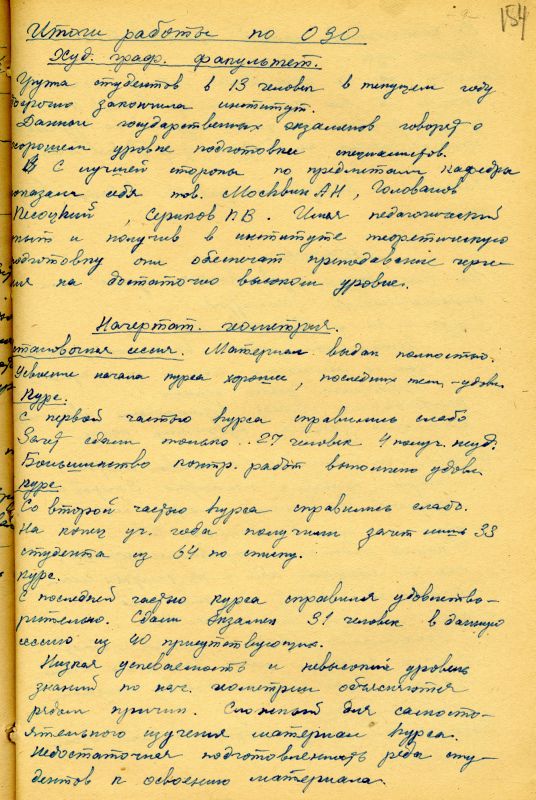 184
Итоги работы по ОЗО
Худ. граф. факультет.
Група студентов в 13 человек в текущем году
досрочно закончила институт.
Данные государственных экзаменов говорят о
хорошем уровне подготовки специалистов.
С лучшей стороны по предметам кафедры
показали себя тов. Москвин АН, Голованов
Песоцкий, Сериков П.В. Имея педагогический
опыт и получив в институте теоретическую
подготовку они обеспечат преподавание черче-
ния на достаточно высоком уровне.
Начертат. геометрия.
становочная сессия. Материал выдан полностью.
Усвоение начала курса хорошее, последних тем - удовл.
Курс.
С первой частью курса справились слабо
Зачет сдали только 27 человек 4 получ. неуд.
Большинство контр. работ выполнено удовл.
курс
Со второй частью курса справились слабо.
На конец уч. года получили зачет лишь 33
студента из 64 по списку.
курс.
С последней частью курса справился удовлетво-
рительно. Сдали экзамен 31 человек в данную
сессию из 40 присутствующих.
Низкая успеваемость и невысокий уровень
знаний по нач. геометрии объясняются
рядом причин. Сложный для самосто-
ятельного изучения материал курса.
Недостаточная подготовленность ряда сту-
дентов к освоению материала.